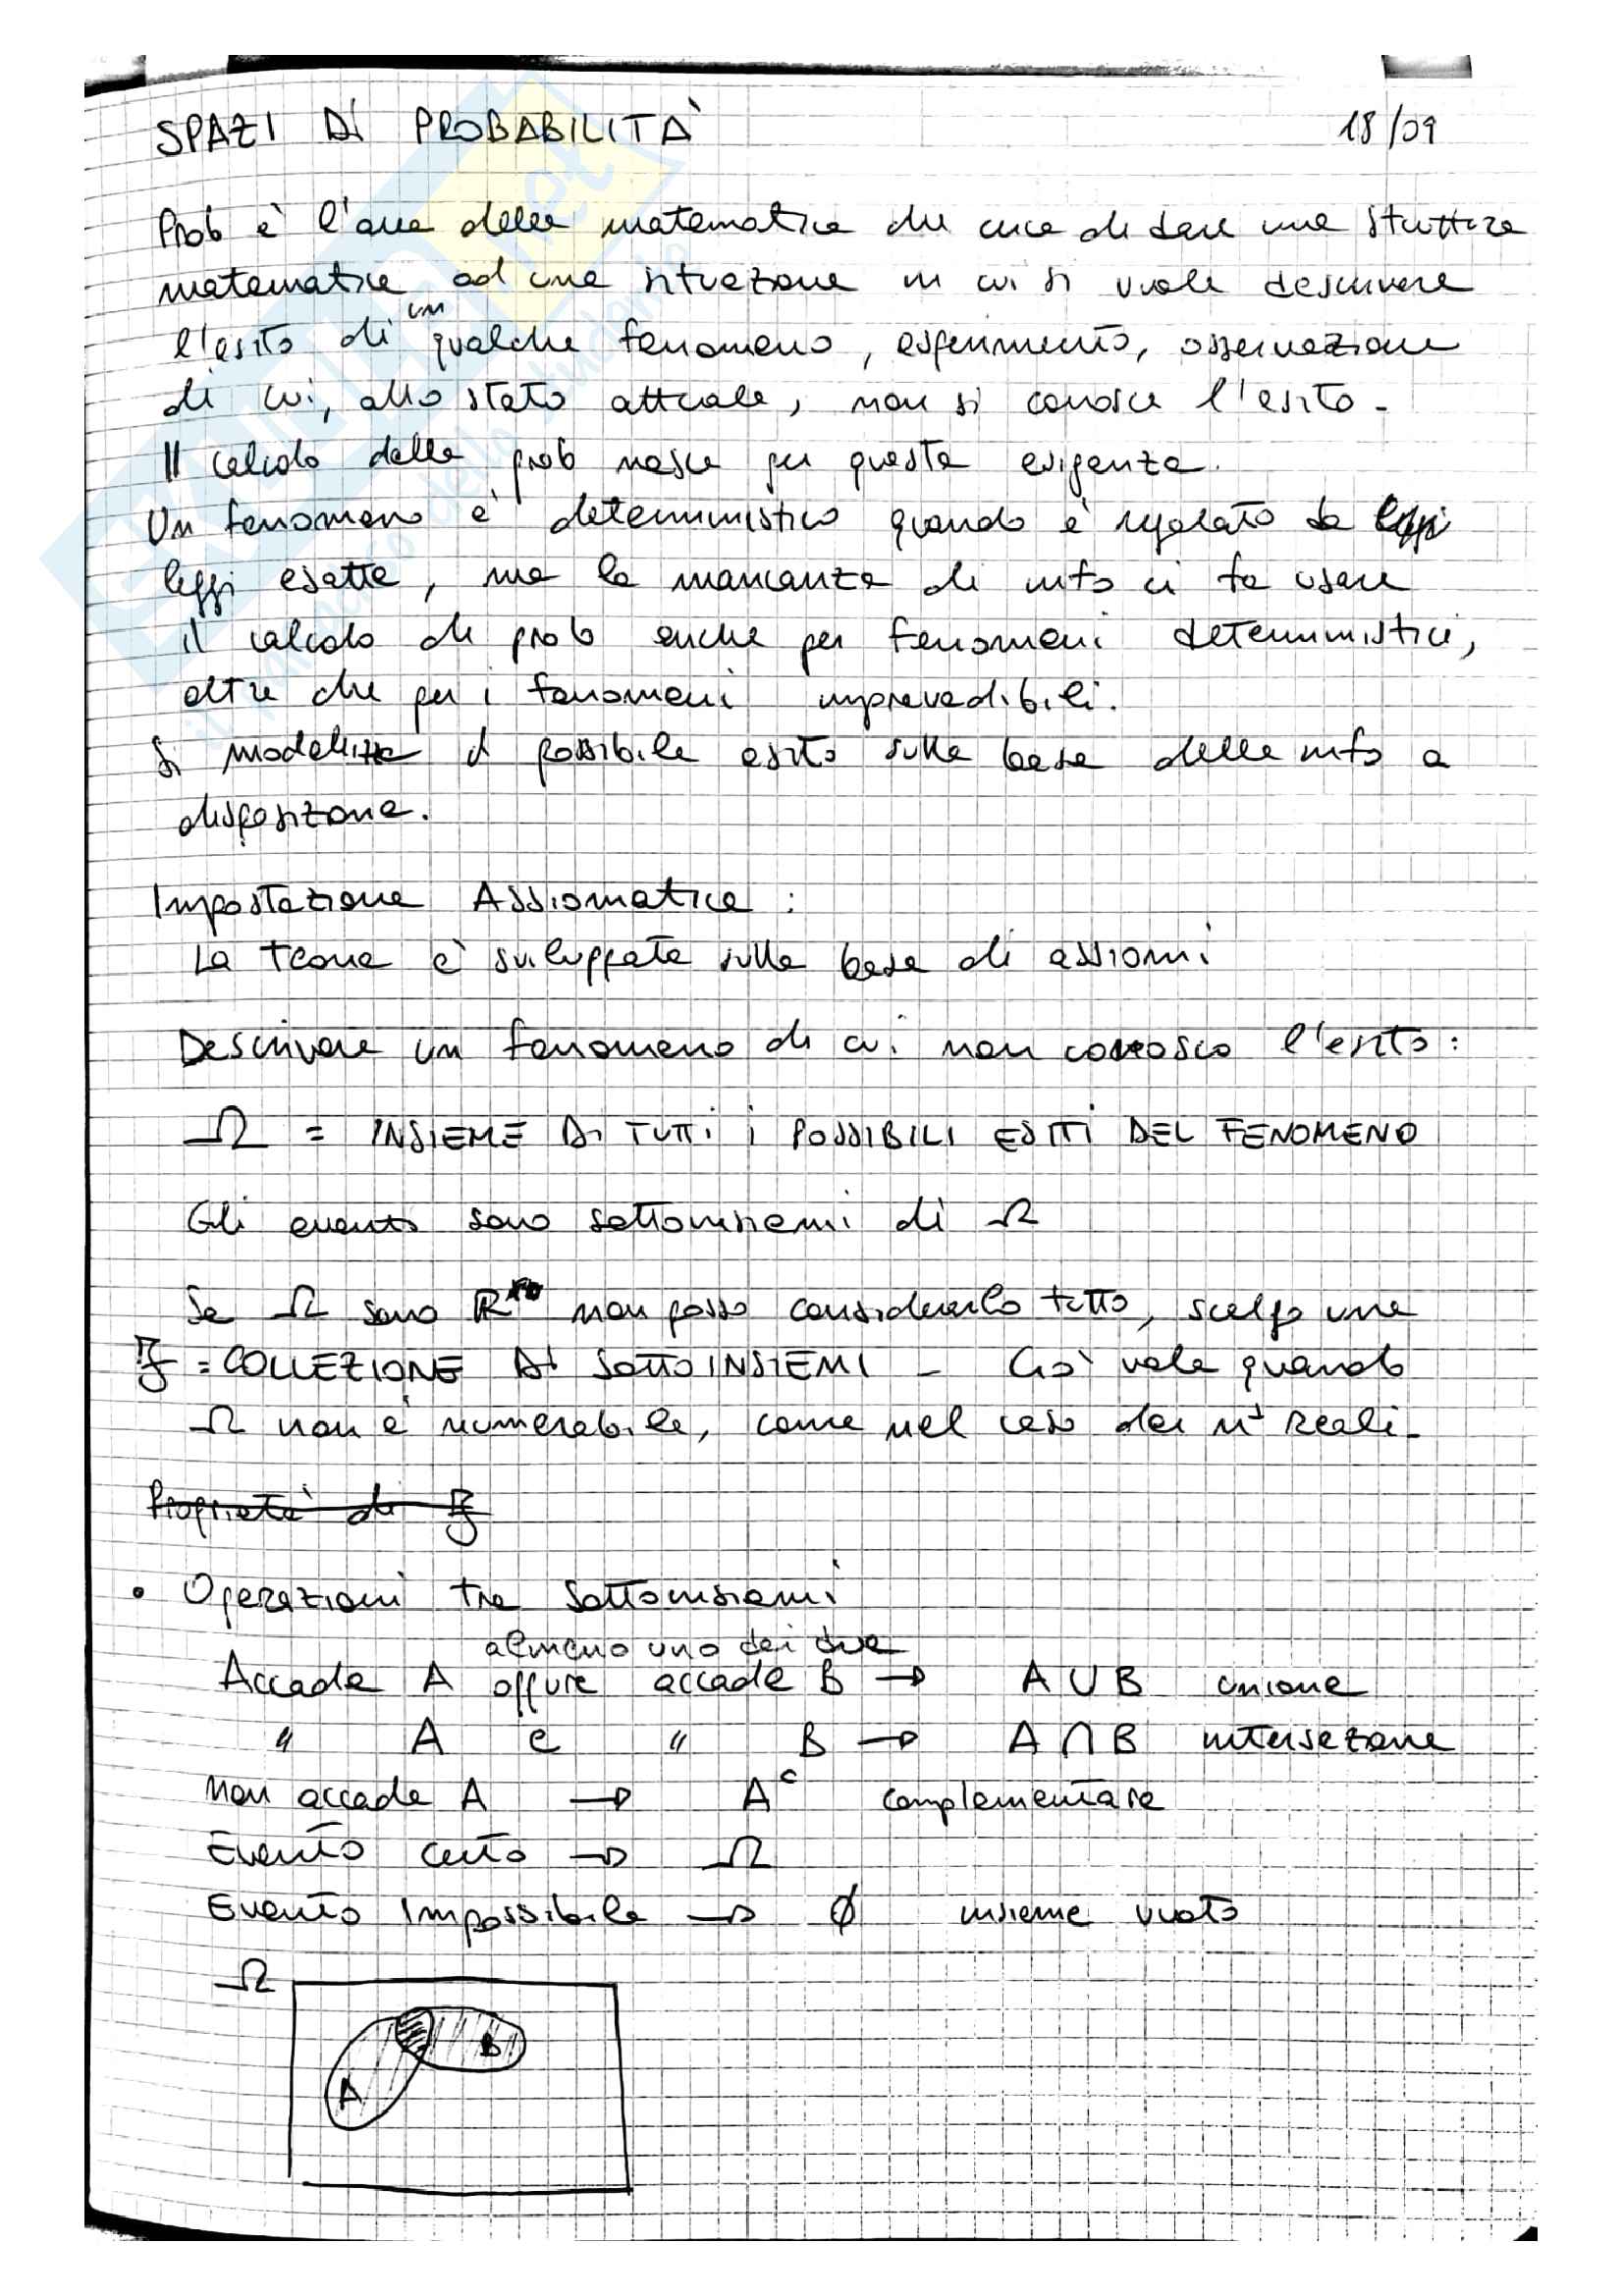 SPAZI DI PROBABILITÀ 18/09
Prob è l'area della matematica che cerca di dare una struttura
matematica ad una situazione in cui si vuole descrivere
un
l'esito di qualche fenomeno, esperimento, osservazione
di cui, allo stato attuale, non si conosce l'esito.
Il calcolo della prob nasce per questa esigenza.
Un fenomeno è deterministico quando è regolato da leggi
leggi esatte, ma la mancanza di info ci fa usare
il calcolo di prob anche per fenomeni deterministici,
oltre che per i fenomeni imprevedibili.
Si modellizza il possibile esito sulla base delle info a
disposizione.
Impostazione Assiomatica:
La teoria è sviluppata sulla base di assiomi
Descrivere un fenomeno di cui non conosco l'esito:
Ω = INSIEME DI TUTTI I POSSIBILI ESITI DEL FENOMENO
Gli eventi sono sottoinsiemi di Ω
Se Ω sono R non posso considerarlo tutto, scelgo una
F = COLLEZIONE DI SOTTOINSIEMI - Ciò vale quando
Ω non è numerabile, come nel caso dei n° reali.
Proprietà di F
• Operazioni tra sottoinsiemi
almeno uno dei due
Accade A oppure accade B → A ∪ B unione
" A e " B → A ∩ B intersezione
Non accade A → Aᶜ complementare
Evento certo → Ω
Evento Impossibile → ∅ insieme vuoto
Ω
B
A